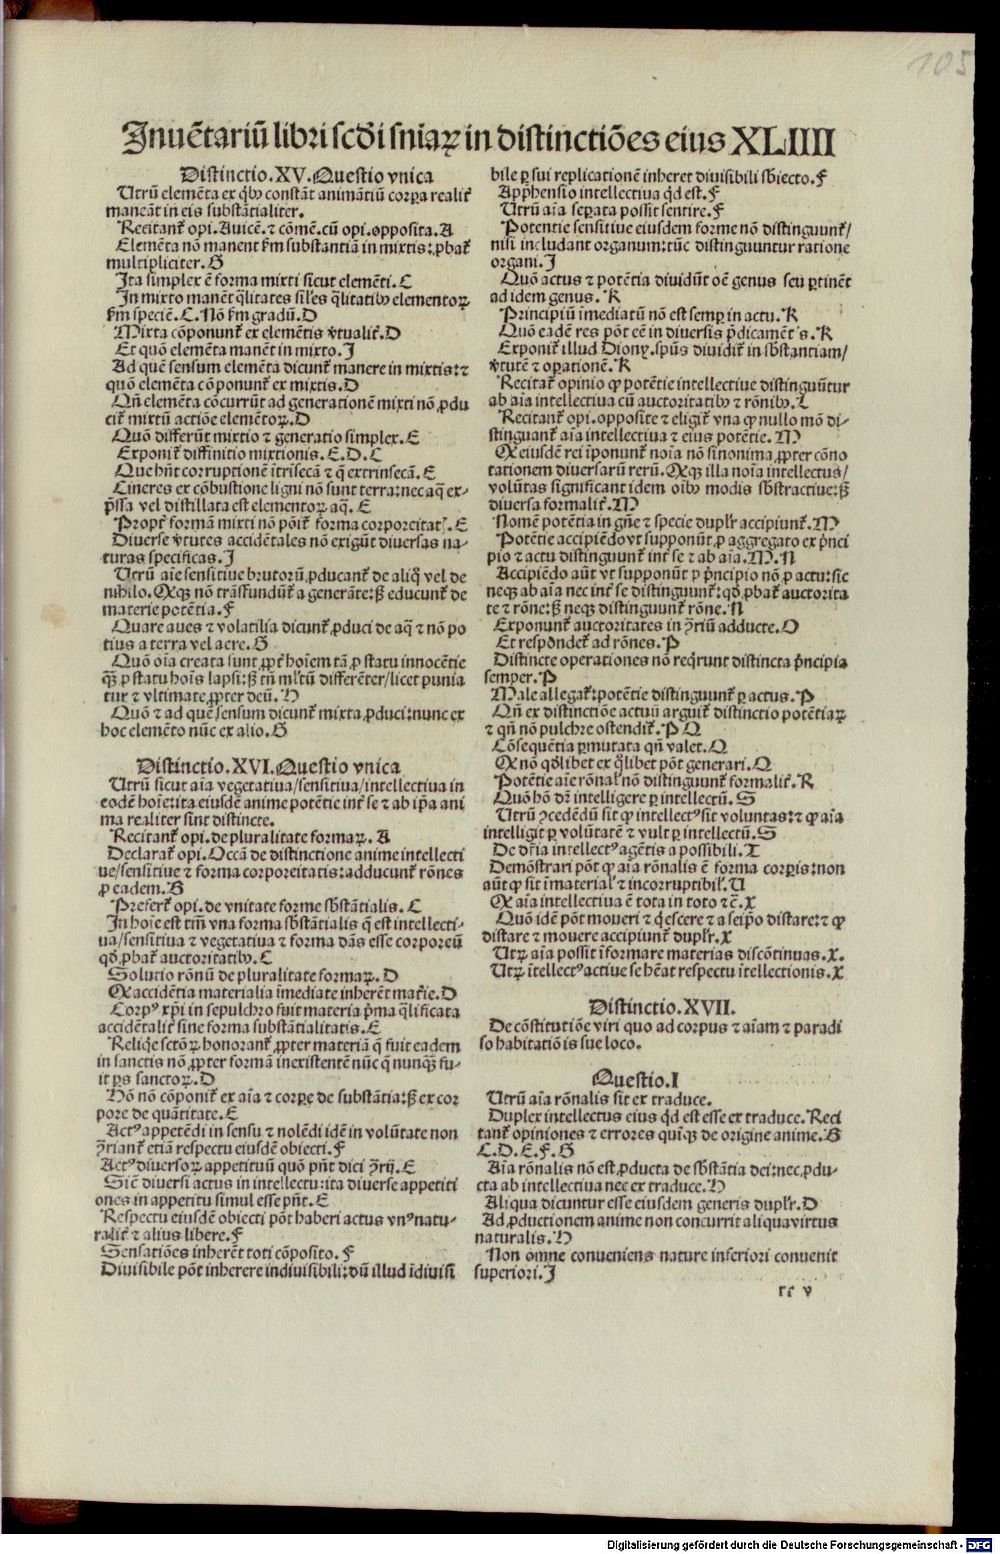 105
Inuētariū libri scďi sniaꝝ in distinctiōes eius XLIIII
Distinctio.XV.Questio vnica
Utrū elemēta ex q̇bꝰ constāt animātiū corꝑa realiẗ
maneāt in eis substātialiter.
Recitanẗ opi.Auicē.⁊ cōmē.cū opi.opposita.A
Elemēta nō manent ẗm substantiā in mixtis:ꝓbaẗ
multipliciter.B
Ita simplex ē forma mixti sicut elemēti.C
In mixto manēt q̄litates siłes q̄litatibꝰ elementoꝝ
ẗm speciē.C.Nō ẗm gradū.D
Mixta cōponunẗ ex elemētis v̄tualiẗ.D
Et quō elemēta manēt in mixto.I
Ad quē sensum elemēta dicunẗ manere in mixtis:⁊
quō elemēta cōponunẗ ex mixtis.D
Qn̄ elemēta cōcurrūt ad generationē mixti nō ꝓdu
ciẗ mixtū actiōe elemētoꝝ.D
Quō differūt mixtio ⁊ generatio simplex.E
Exponiẗ diffinitio mixtionis.E.D.C
Que hn̄t corruptionē ītrisecā ⁊ q̄ extrinsecā.E
Cineres ex cōbustione ligni nō sunt terra:nec aq̄ ex-
p̄ssa vel distillata est elementoꝝ aq̄.E
Propẗ formā mixti nō pōiẗ forma corporeitatꝭ.E
Diuerse v̄tutes accidētales nō exigūt diuersas na-
turas specificas.I
Utrū aīe sensitiue brutorū ꝓducanẗ de aliq̊ vel de
nihilo.Et qꝙ nō trāsfundūẗ a generāte:sꝫ educunẗ de
materie potētia.F
Quare aues ⁊ volatilia dicunẗ ꝓduci de aq̄ ⁊ nō po
tius a terra vel aere.G
Quō oīa creata sunt ꝓpẗ hoīem tā ꝓ statu innocētie
qꝫ̄ ꝓ statu hoīs lapsi:sꝫ tn̄ mľtū differēter/licet punia
tur ⁊ vltimate ꝓpter deū.H
Quō ⁊ ad quē sensum dicunẗ mixta ꝓduci:nunc ex
hoc elemēto nūc ex alio.G
Distinctio.XVI.Questio vnica
Utrū sicut aīa vegetatiua/sensitiua/intellectiua in
eodē hoīe:ita eiusdē anime potētie inẗ se ⁊ ab ip̄a ani
ma realiter sint distincte.
Recitanẗ opi.de pluralitate formaꝝ.A
Declaraẗ opi.Occā de distinctione anime intellecti
ue/sensitiue ⁊ forma corporeitatis:adducunẗ rōnes
ꝓ eadem.B
Preferẗ opi.de vnitate forme sb̄stātialis.C
In hoīe est tm̄ vna forma sb̄stātialis q̄ est intellecti-
ua/sensitiua ⁊ vegetatiua ⁊ forma dās esse corporeū
qđ ꝓbaẗ auctoritatibꝰ.C
Solutio rōnū de pluralitate formaꝝ.D
Qꝙ accidētia materialia īmediate inherēt mať̄ie.D
Corpꝰ xp̄i in sepulchro fuit materia p̄ma q̄lificata
accidētaliẗ sine forma substātialitatis.E
Reliq̇e sctōꝝ honoranẗ ꝓpter materiā q̄ fuit eadem
in sanctis nō ꝓpter formā inexistentē nūc q̄ nunqꝫ̄ fu-
it ꝑs sanctoꝝ.D
Hō nō cōponiẗ ex aīa ⁊ corꝑe de substātia:sꝫ ex cor
pore de quātitate.E
Actꝰ appetēdi in sensu ⁊ nolēdi idē in volūtate non
ꝯrianẗ etiā respectu eiusdē obiecti.F
Actꝰ diuersoꝝ appetituū quō pn̄t dici ꝯrij.E
Sicē diuersi actus in intellectu:ita diuerse appetiti
ones in appetitu simul esse pn̄t.E
Respectu eiusdē obiecti pōt haberi actus vnꝰ natu-
raliẗ ⁊ alius libere.F
Sensatiōes inherēt toti cōposito.F
Diuisibile pōt inherere indiuisibili:dū illud īdiuisi
bile ꝑ sui replicationē inheret diuisibili sb̄iecto.F
App̄hensio intellectiua q̇d est.F
Utrū aīa seꝑata possit sentire.F
Potentie sensitiue eiusdem forme nō distinguunẗ/
nisi includant organum:tūc distinguuntur ratione
organi.I
Quō actus ⁊ potētia diuidūt oē genus seu ꝑtinēt
ad idem genus.K
Principiū īmediatū nō est semꝑ in actu.K
Quō eadē res pōt eē in diuersis p̄dicamētis.K
Exponiẗ illud Diony.spūs diuidiẗ in sb̄stantiam/
v̄tutē ⁊ oꝑationē.K
Recitaẗ opinio ꝙ potētie intellectiue distinguūtur
ab aīa intellectiua cū auctoritatibꝰ ⁊ rōnibꝰ.L
Recitanẗ opi.opposite ⁊ eligiẗ vna ꝙ nullo mō di-
stinguanẗ aīa intellectiua ⁊ eius potētie.M
Qꝙ eiusdē rei īponunẗ noīa nō sinonima ꝓpter cōno
tationem diuersarū rerū.Et qꝙ illa noīa intellectus/
volūtas significant idem oībꝰ modis sb̄stractiue:sꝫ
diuersa formaliẗ.M
Nomē potētia in gn̄e ⁊ specie dupľr accipiunẗ.M
Potētie accipiēdo vt supponūt ꝓ aggregato ex p̄nci
pio ⁊ actu distinguunẗ inẗ se ⁊ ab aīa.M.N
Accipiēdo aūt vt supponūt ꝓ p̄ncipio nō ꝓ actu:sic
neqꝫ ab aīa nec inẗ se distinguunẗ:qđ ꝓbaẗ auctorita
te ⁊ rōne:sꝫ neqꝫ distinguunẗ rōne.N
Exponunẗ auctoritates in ꝯriū adducte.O
Et respōdeẗ ad rōnes.P
Distincte operationes nō reqrunt distincta p̄ncipia
semper.P
Male allegaẗ:potētie distinguunẗ ꝑ actus.P
Qn̄ ex distinctiōe actuū arguiẗ distinctio potētiaꝝ
⁊ qn̄ nō pulchre ostendiẗ.P Q
Cōsequētia ꝑmutata qn̄ valet.Q
Qꝙ nō qđlibet ex q̊libet pōt generari.Q
Potētie aīe rōnaľ nō distinguunẗ formaliẗ.R
Quō hō dr̄ intelligere ꝑ intellectū.S
Utrū ꝯcedēdū sit ꝙ intellectꝰ sit voluntas:⁊ ꝙ aīa
intelligit ꝑ volūtatē ⁊ vult ꝑ intellectū.S
De dr̄ia intellectꝰ agētis a possibili.T
Demōstrari pōt ꝙ aīa rōnalis ē forma corꝑis:non
aūt ꝙ sit īmateriaľ ⁊ incorruptibiľ.U
Qꝙ aīa intellectiua ē tota in toto ⁊ cē.X
Quō idē pōt moueri ⁊ q̇escere ⁊ a seip̄o distare:⁊ ꝙ
distare ⁊ mouere accipiunẗ dupľr.X
Utꝝ aīa possit īformare materias discōtinuas.X.
Utꝝ ītellectꝰ actiue se hēat respectu ītellectionis.X
Distinctio.XVII.
De cōstitutiōe viri quo ad corpus ⁊ aīam ⁊ paradi
so habitatiōis sue loco.
Questio.I
Utrū aīa rōnalis sit ex traduce.
Duplex intellectus eius q̇d est esse ex traduce.Reci
tanẗ opiniones ⁊ errores quīqꝫ de origine anime.B
C.D.E.F.G
Aīa rōnalis nō est ꝓducta de sb̄stātia dei:nec ꝓdu-
cta ab intellectiua nec ex traduce.H
Aliqua dicuntur esse eiusdem generis dupľr.D
Ad ꝓductionem anime non concurrit aliqua virtus
naturalis.H
Non omne conueniens nature inferiori conuenit
superiori.I
rr v
Digitalisierung gefördert durch die Deutsche Forschungsgemeinschaft - DFG